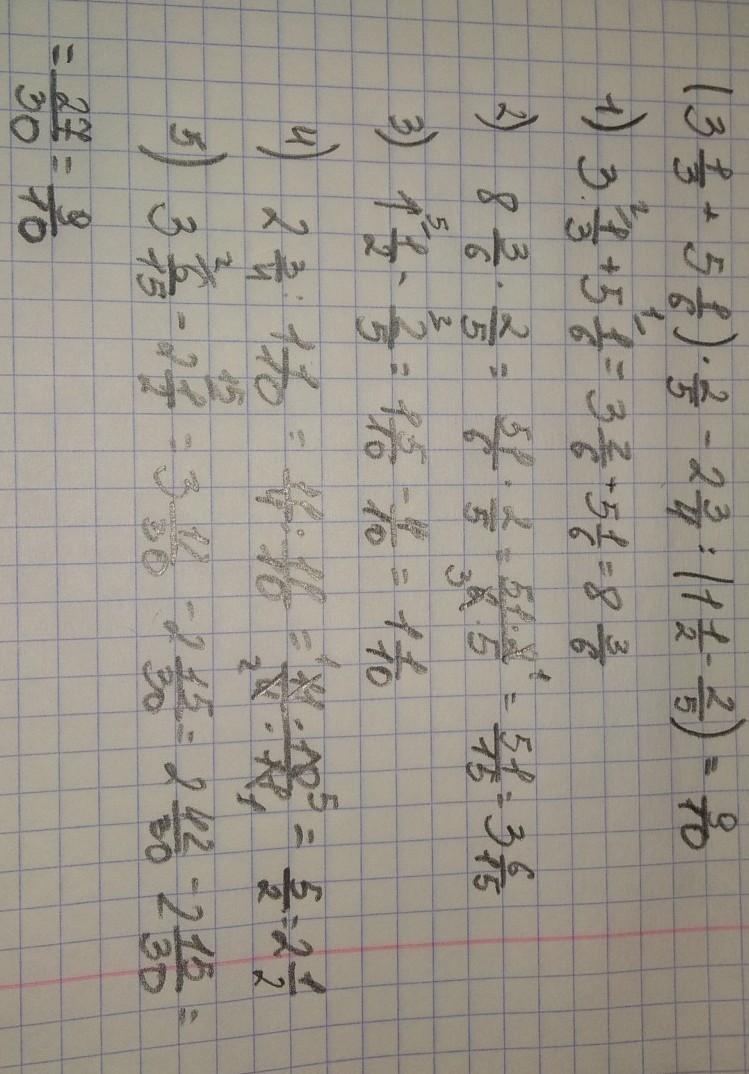 (3 1/3 + 5 1/6) · 2/5 - 2 3/4 : (1 1/2 - 2/5) = 9/10
1) 3 1/3 + 5 1/6 = 3 2/6 + 5 1/6 = 8 3/6
2) 8 3/6 · 2/5 = 51/6 · 2/5 = 51·2/6·5 = 51/15 = 3 6/15
3) 1 1/2 - 2/5 = 1 5/10 - 4/10 = 1 1/10
4) 2 3/4 : 1 1/10 = 11/4 : 11/10 = 11·10/4·11 = 5/2 = 2 1/2
5) 3 6/15 - 2 1/2 = 3 12/30 - 2 15/30 = 2 42/30 - 2 15/30 =
= 27/30 = 9/10